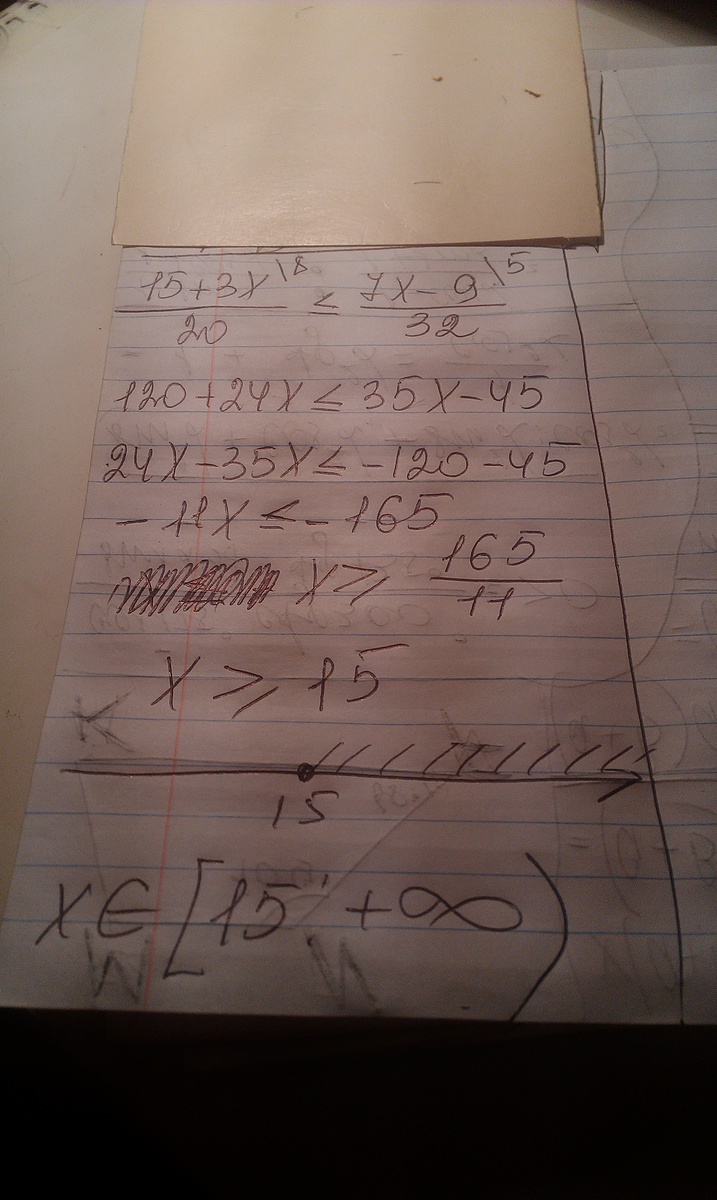 15+3x\8 / 20 ≤ 7x-9\5 / 32
120+24x≤35x-45
24x-35x≤-120-45
-11x≤-165
x≥ 165/11
x≥15
15
x∈[15; +∞)